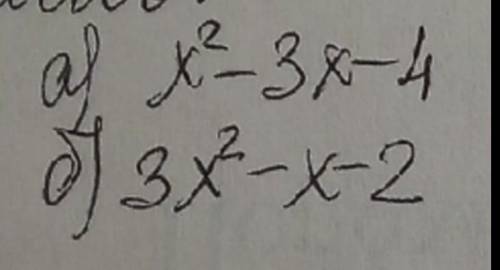 а) x² - 3x - 4
б) 3x² - x - 2